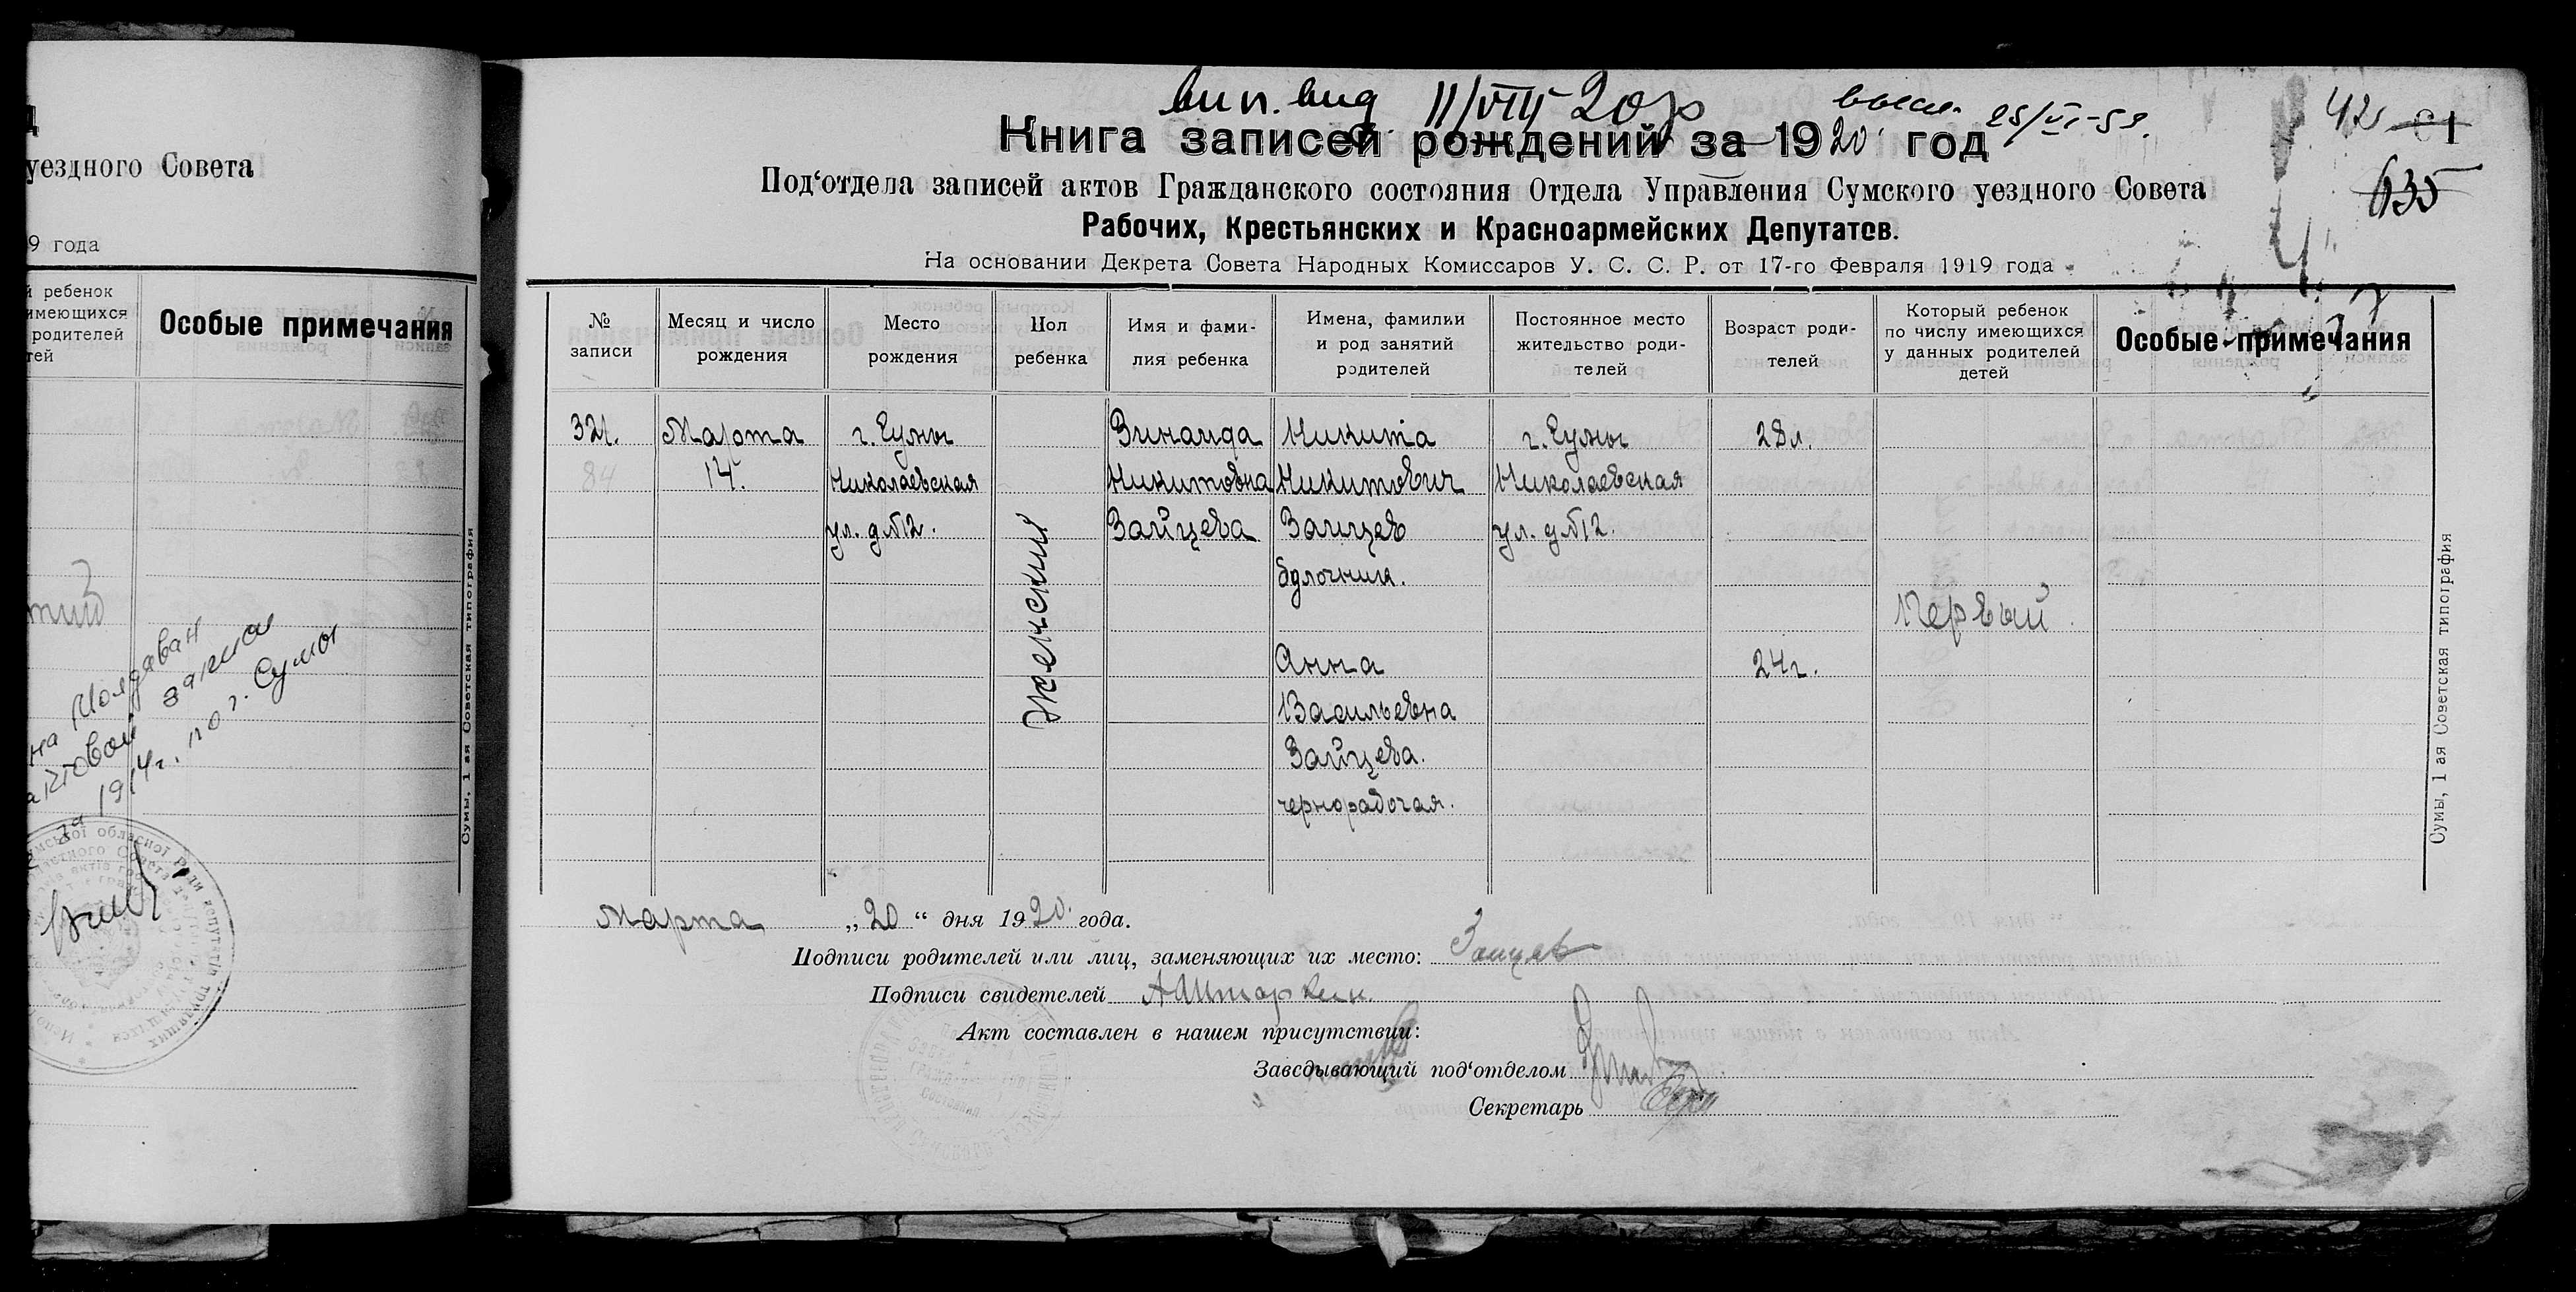 уездного Совета
9 года
й ребенок
имеющихся
родителей
тей
Особые примечания
на Молдаван
актовой записи
за 1914г. по г. Сумы
Сумы, 1 ая Советская типография
вип. вид 11/VIII 20р
25/VI-59.
42
635
Книга записей рождений за 1920 год
Под‘отдела записей актов Гражданского состояния Отдела Управления Сумского уездного Совета
Рабочих, Крестьянских и Красноармейских Депутатов.
На основании Декрета Совета Народных Комиссаров У. С. С. Р. от 17-го Февраля 1919 года
№
записи
Месяц и число
рождения
Место
рождения
Пол
ребенка
Имя и фами-
лия ребенка
Имена, фамилии
и род занятий
родителей
Постоянное место
жительство роди-
телей
Возраст роди-
телей
Который ребенок
по числу имеющихся
у данных родителей
детей
Особые примечания
321.
84
Марта
14.
г. Сумы
Николаевская
ул. д.№12.
женский
Зинаида
Никитовна
Зайцева
Никита
Никитович
Зайцев
булочник.
Анна
Васильевна
Зайцева.
чернорабочая.
г. Сумы
Николаевская
ул. д.№12.
28л.
24г.
Первый.
Сумы, 1 ая Советская типография
Марта „20“ дня 1920. года.
Подписи родителей или лиц, заменяющих их место: Зайцев
Подписи свидетелей
Акт составлен в нашем присутствии:
Заведывающий под‘отделом
Секретарь